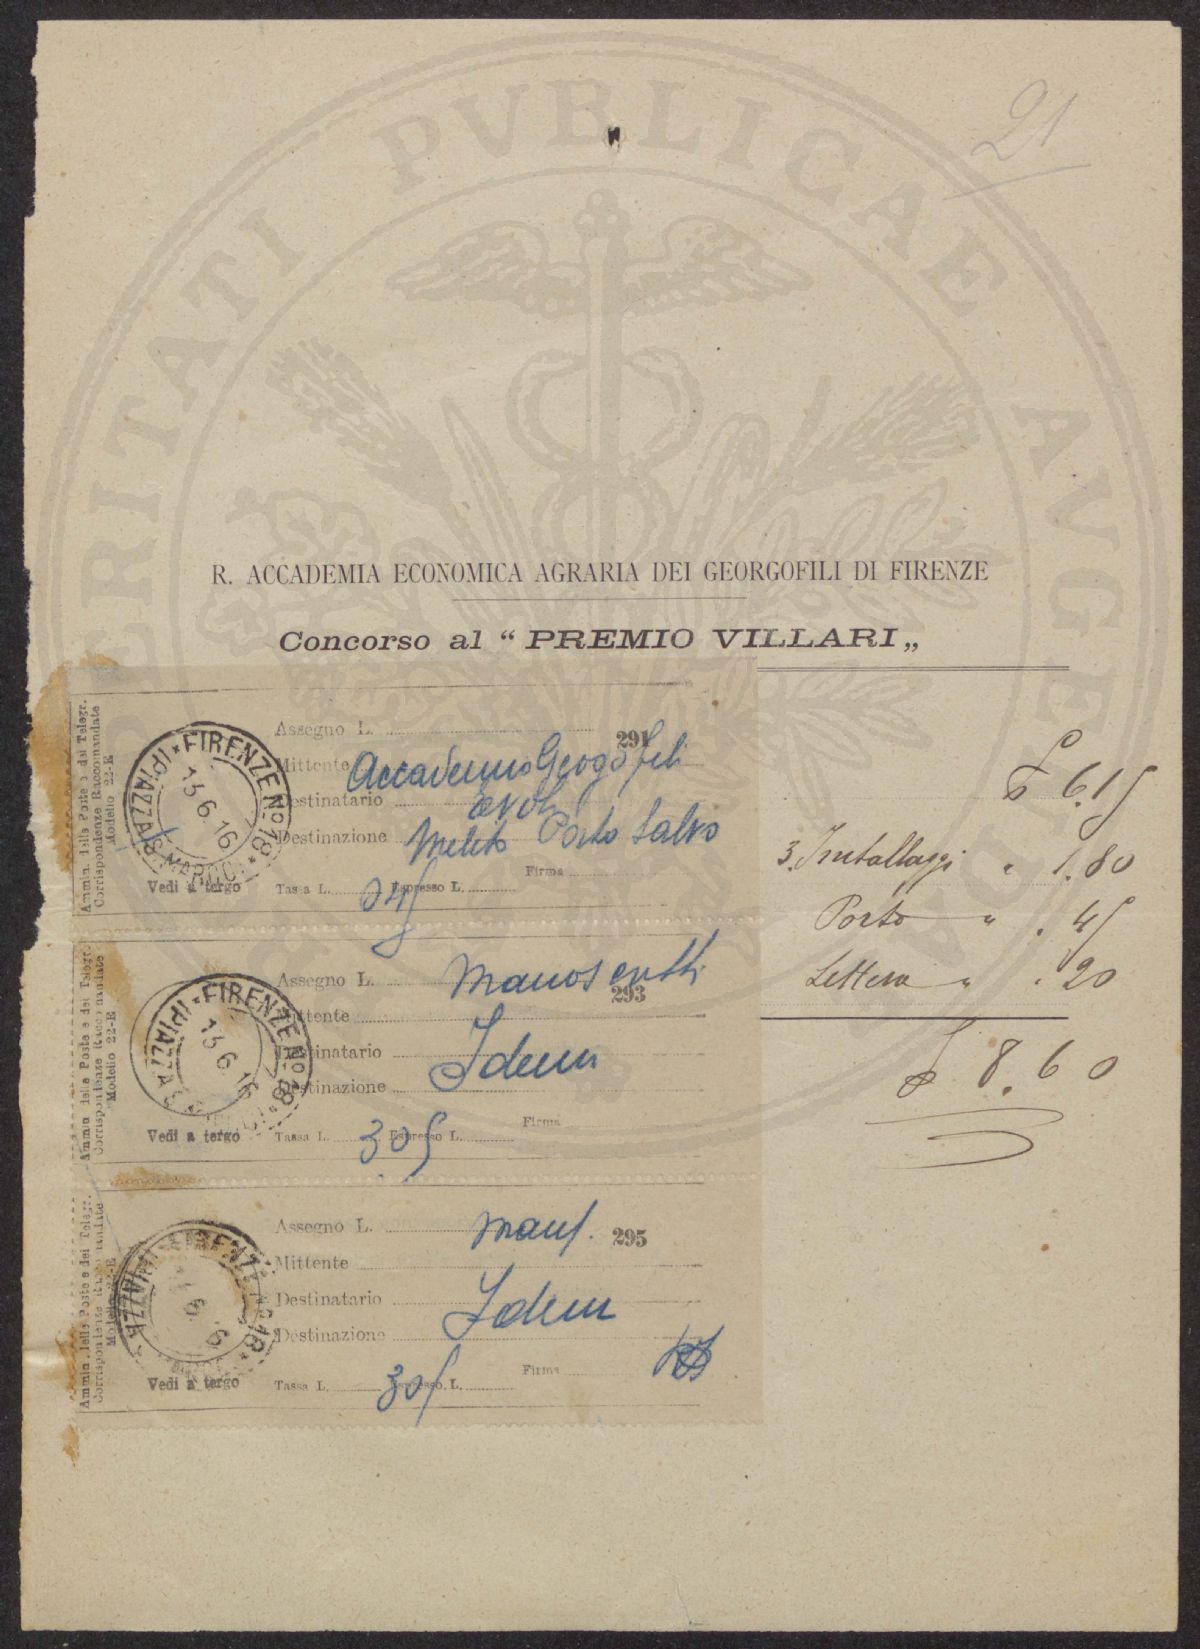 PROSPERITATI PVBLICAE AVGENDAE
21
R. ACCADEMIA ECONOMICA AGRARIA DEI GEORGOFILI DI FIRENZE
Concorso al “ PREMIO VILLARI „
Ammin. delle Poste e dei Telegr.
Corrispondenze Raccomandate
Modello 22-E
FIRENZE No 18
(PIAZZA S. MARCO)
15 6. 16
Assegno L.
291
Mittente Accademia Georgofili
Destinatario
Destinazione Melito Porto Salvo
Vedi a tergo Tassa L. Espresso L. Firma
£ 6.15
3. Imballaggi " 1.80
Porto " . 45
Lettera " . 20
£ 8.60
Ammin. delle Poste e dei Telegr.
Corrispondenze Raccomandate
Modello 22-E
FIRENZE No 18
15 6 16
Assegno L. Manoscritti
293
Mittente
Destinatario Idem
Destinazione
Vedi a tergo Tassa L. 305 Espresso L. Firma
Ammin. delle Poste e dei Telegr.
Corrispondenze Raccomandate
Modello 22-E
FIRENZE No 18
Assegno L. Man 295
Mittente
Destinatario Idem
Destinazione
Vedi a tergo Tassa L. 305 Espresso L. Firma